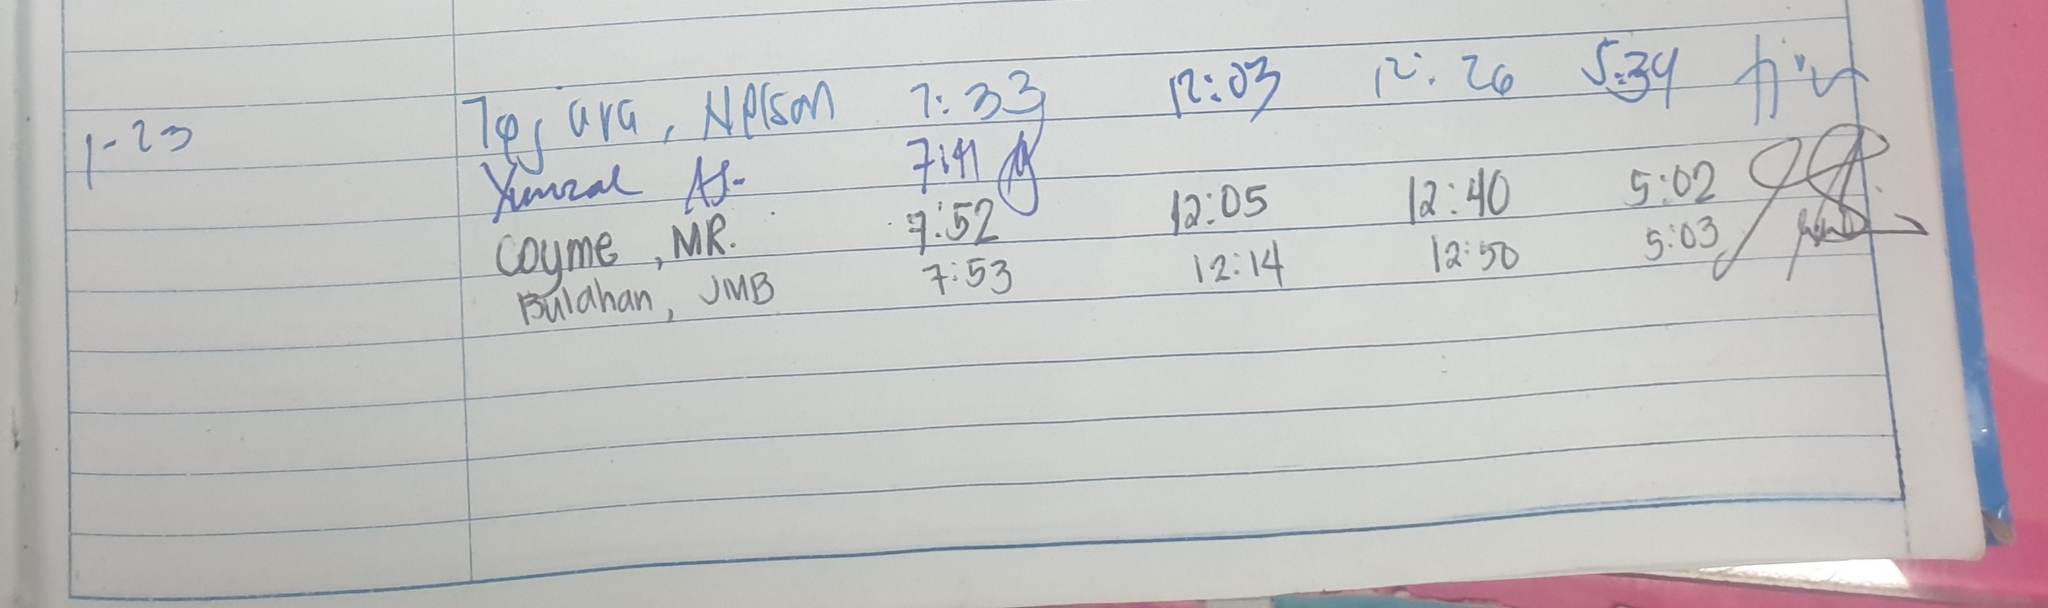 1-23 Nelson 7:33 12:03 12:26 5:34
7:41
Coyme, MR. 7:52 12:05 12:40 5:02
Bulahan, JMB 7:53 12:14 12:50 5:03